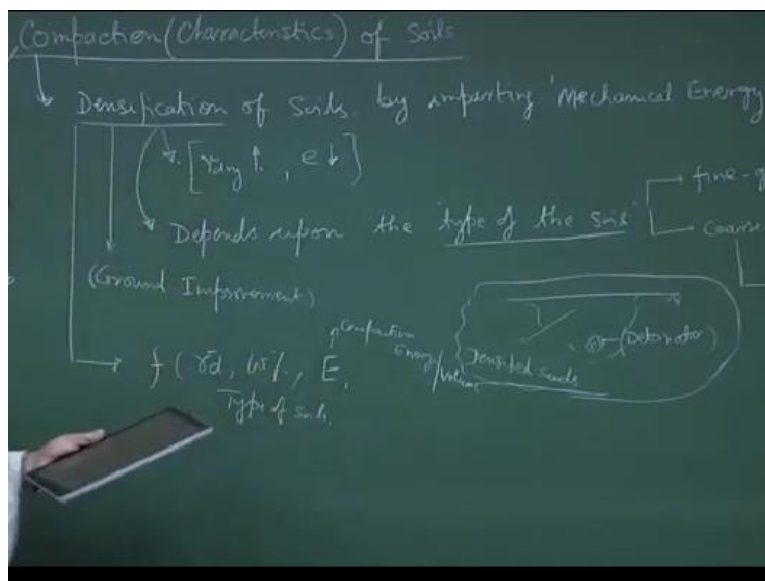 Compaction (Characteristics) of Soils
Densification of Soils. by imparting 'Mechanical Energy
[γdry ↑, e↓]
Depends upon the type of the soil
fine-g
Coarse
(Ground Improvement)
f (γd, w%, E,
Compaction
Energy/Volume
Type of soil,
Densified sands
(Detonator)